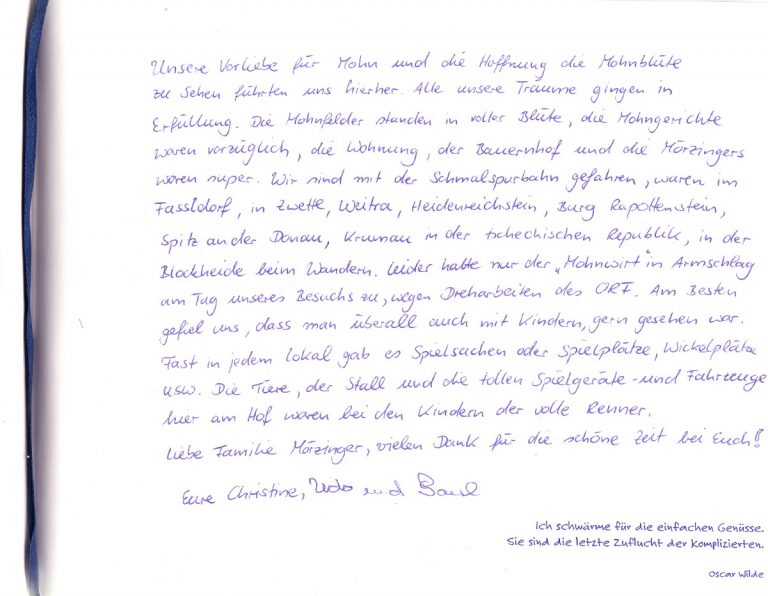 Unsere Vorliebe für Mohn und die Hoffnung die Mohnblüte
zu sehen führten uns hierher. Alle unsere Träume gingen in
Erfüllung. Die Mohnfelder standen in voller Blüte, die Mohngerichte
waren vorzüglich, die Wohnung, der Bauernhof und die Mörzingers
waren super. Wir sind mit der Schmalspurbahn gefahren, waren im
Fassldorf, in Zwettl, Weitra, Heidenreichstein, Burg Rapottenstein,
Spitz an der Donau, Krumau in der tschechischen Republik, in der
Blockheide beim Wandern. Leider hatte nur der „Mohnwirt" in Armschlag
am Tag unseres Besuchs zu, wegen Dreharbeiten des ORF. Am Besten
gefiel uns, dass man überall auch mit Kindern, gern gesehen war.
Fast in jedem Lokal gab es Spielsachen oder Spielplätze, Wickelplätze
usw. Die Tiere, der Stall und die tollen Spielgeräte und Fahrzeuge
hier am Hof waren bei den Kindern der volle Renner.
Liebe Familie Mörzinger, vielen Dank für die schöne Zeit bei Euch!
Eure Christine, Udo und
Ich schwärme für die einfachen Genüsse.
Sie sind die letzte Zuflucht der Komplizierten.
Oscar Wilde